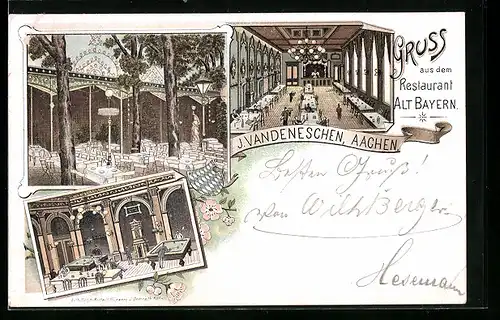 GRUSS
aus dem
Restaurant
ALT BAYERN.
J. VANDENESCHEN, AACHEN.
Besten Gruß!
von Wilh. Berger
Hesemann